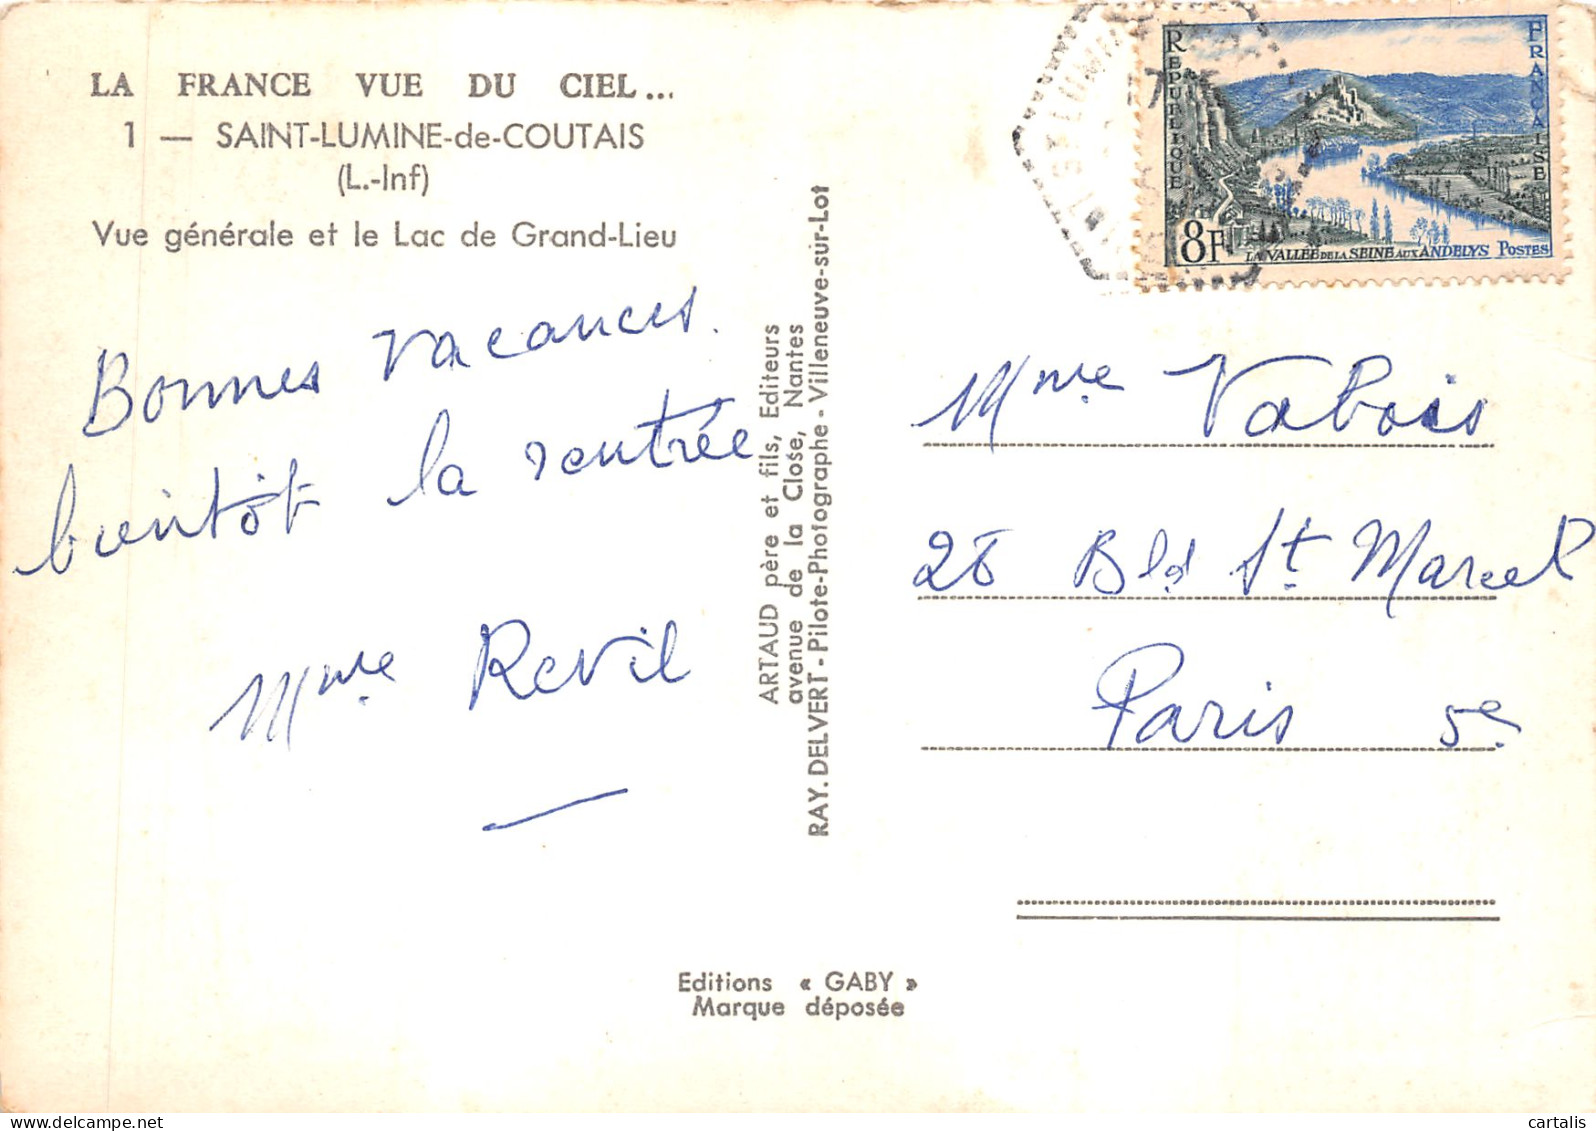 LA FRANCE VUE DU CIEL...
1 — SAINT-LUMINE-de-COUTAIS
(L.-Inf)
Vue générale et le Lac de Grand-Lieu
Bonnes vacances.
bientôt la rentrée
Mme Revil
ARTAUD père et fils, Editeurs
avenue de la Close, Nantes
RAY. DELVERT - Pilote-Photographe - Villeneuve-sur-Lot
REPUBLIQUE
FRANÇAISE
8F
LA VALLÉE DE LA SEINE AUX ANDELYS POSTES
ST LUMINE
Mme Vabois
28 Bld St Marcel
Paris 5e
Editions « GABY »
Marque déposée
1
cartalis
www.delcampe.net